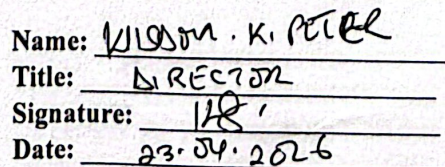 Name: WILSON. K. PETER
Title: DIRECTOR
Signature:
Date: 23.04.2026